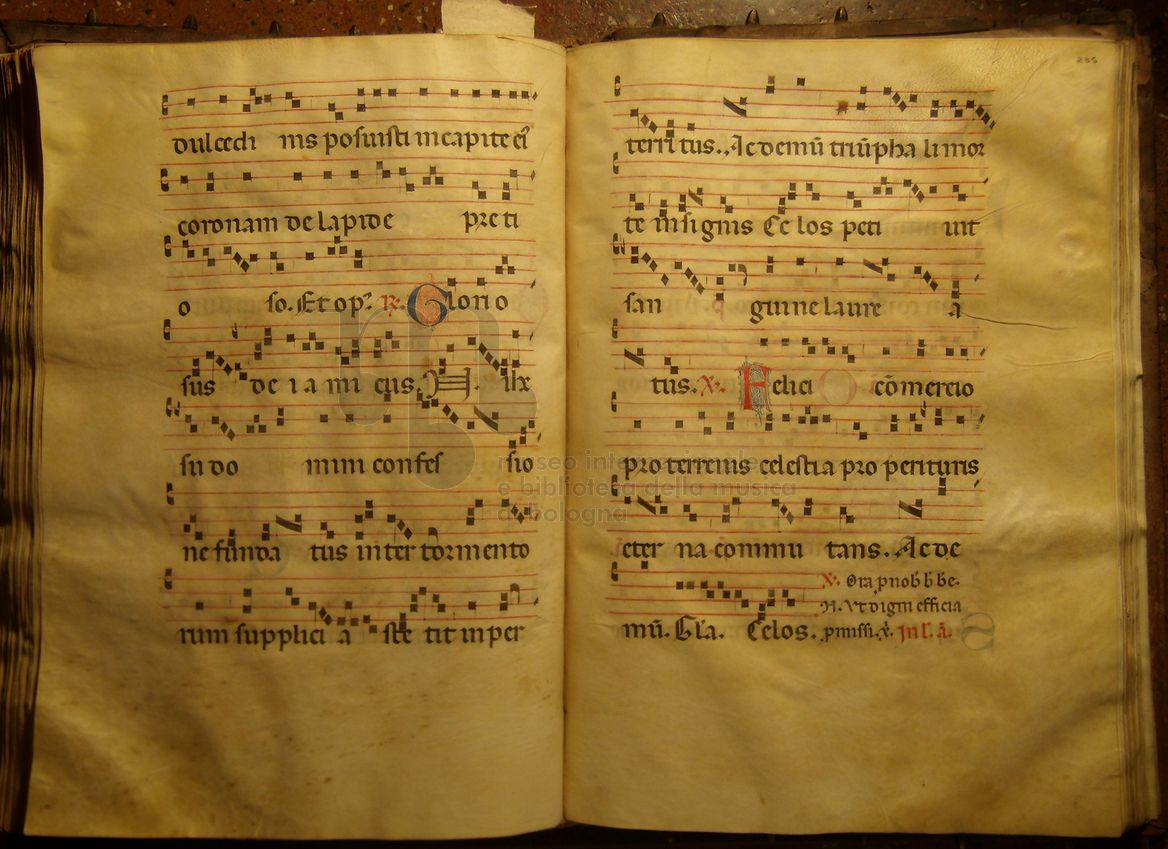 dulcedi nis posuisti in capite eiꝰ
coronam de lapide pre ti
o so. Et op. ℟. Glorio
sus de i a mi cus. Ilix
su do mini confes sio
ne funda tus inter tormento
rum supplici a ste tit imper
territus. Ac demū triūpha li mor
te insignis Celos peti uit
san guine laure a
tus. ℣. Felici cōmercio
pro terrenis celestia pro perituris
eter na commu tans. Ac de
mū. Gl'a. Celos.
℣. Ora p nob b be-
n. Vt digni efficia
pmissi. x̄. In l. a.
museo internazionale
e biblioteca della musica
di bologna
255